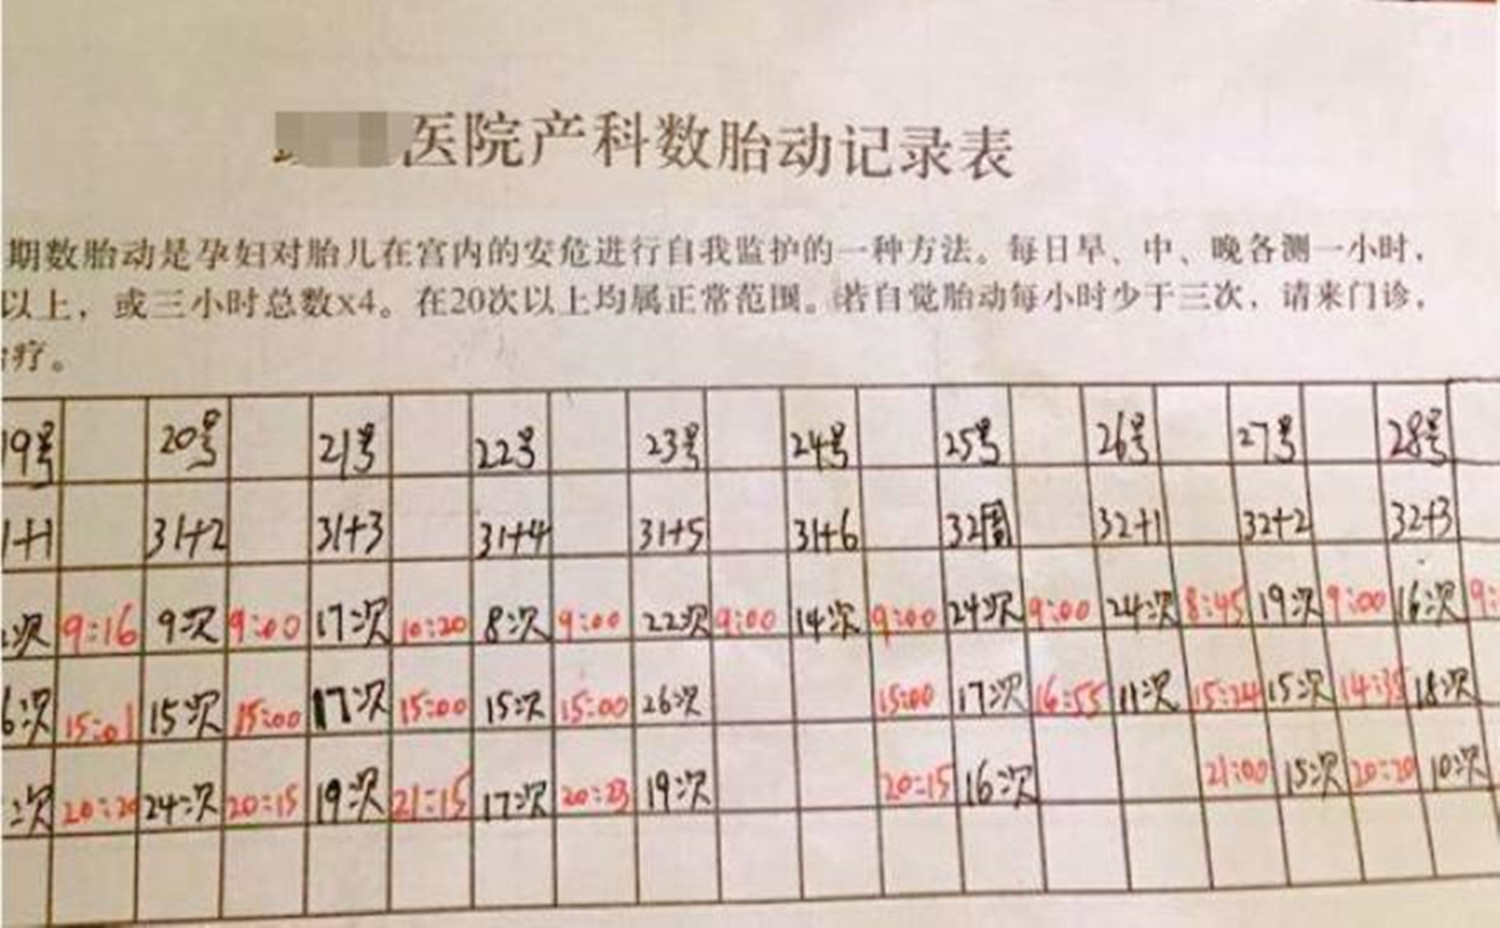 医院产科数胎动记录表
期数胎动是孕妇对胎儿在宫内的安危进行自我监护的一种方法。每日早、中、晚各测一小时，
以上，或三小时总数x4。在20次以上均属正常范围。若自觉胎动每小时少于三次，请来门诊，
疗。
19号 20号 21号 22号 23号 24号 25号 26号 27号 28号
1+1 31+2 31+3 31+4 31+5 31+6 32周 32+1 32+2 32+3
次 9:16 9次 9:00 17次 10:20 8次 9:00 22次 9:00 14次 9:00 24次 9:00 24次 8:45 19次 9:00 16次 9:
6次 15:01 15次 15:00 17次 15:00 15次 15:00 26次 15:00 17次 16:55 11次 15:24 15次 14:35 18次
次 20:20 24次 20:15 19次 21:15 17次 20:23 19次 20:15 16次 21:00 15次 20:20 10次